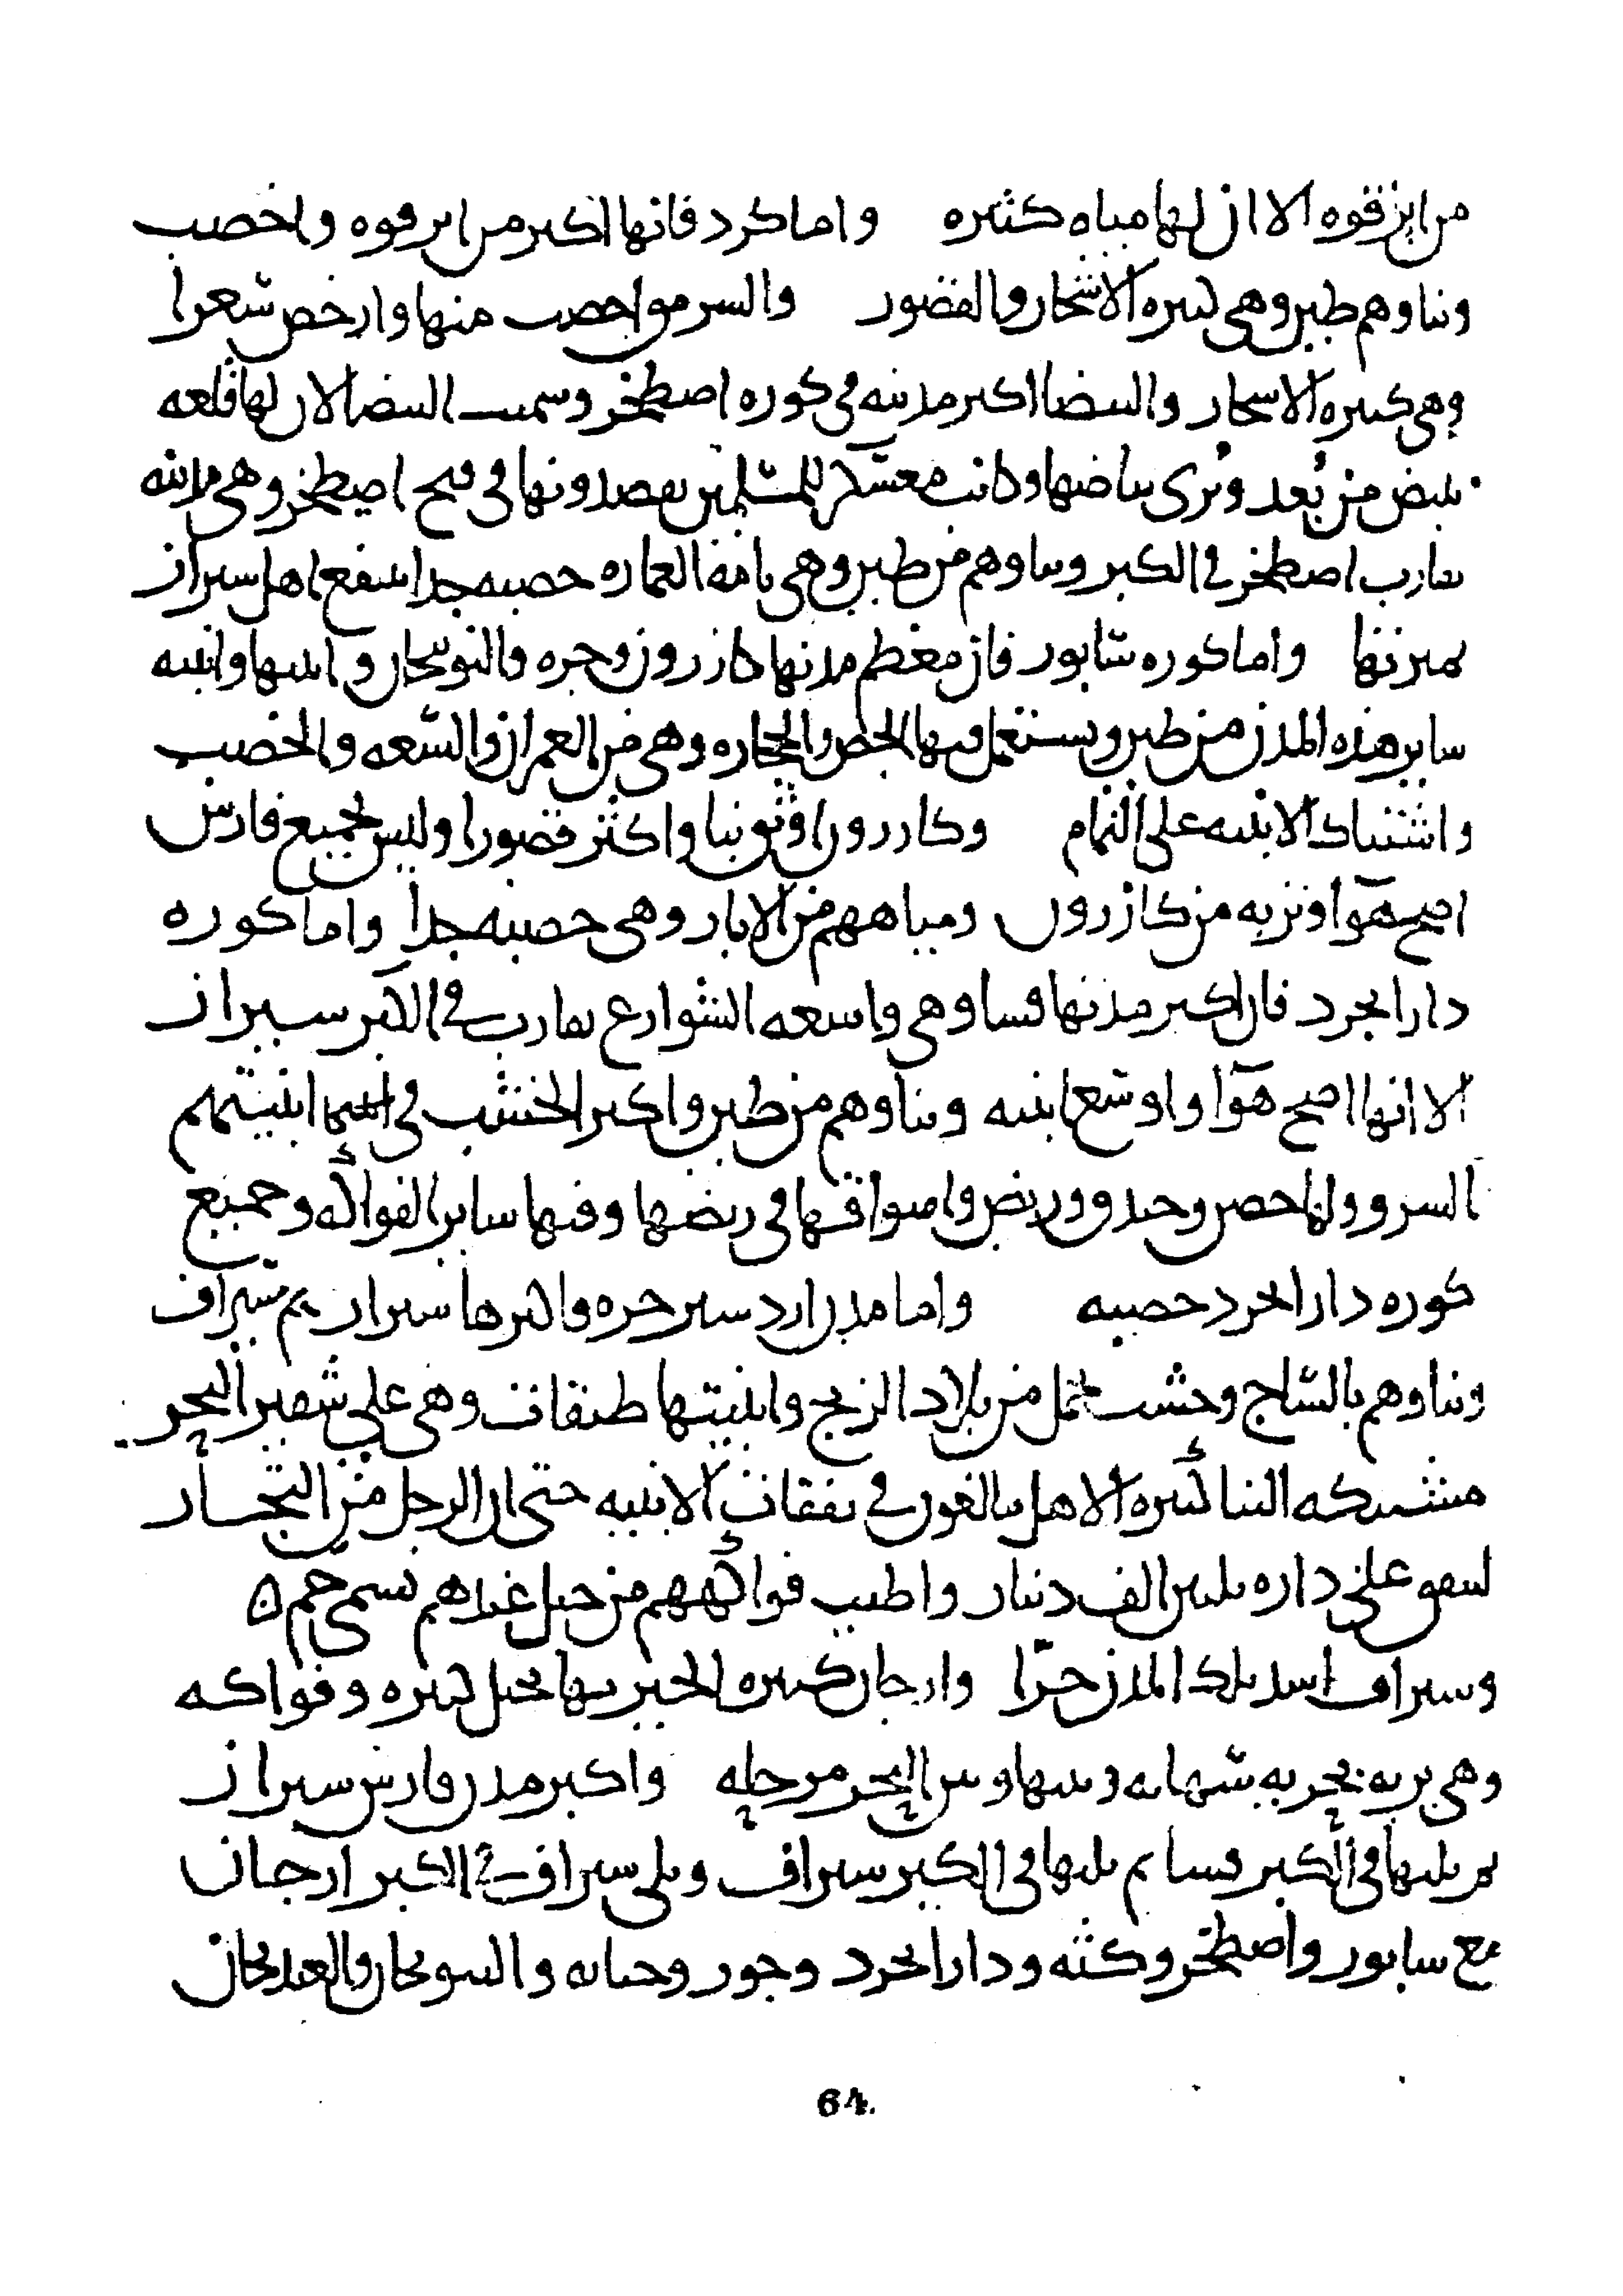 من ابرقوه الا ان لها مياه كثيره واما كرد فانها اكبر من ابرقوه واخصب
وبناوهم طين وهي كثيره الاشجار والقصور والسرمق اخصب منها وارخص سعرا
وهي كثيره الاشجار والبيضا اكبر مدينه في كوره اصطخر وسميت البيضا لان لها قلعه
تبيض من بعد وترى بياضها وكانت معسكر للمسلمين يقصدونها في فتح اصطخر وهي مدينه
تقارب اصطخر في الكبر وبناوهم من طين وهي تامه العماره خصبه جدا ينتفع اهل شيراز
بميرتها واما كوره سابور فان معظم مدنها كازرون وخره والنوبنجان وابنيتها وابنيه
ساير هذه المدن من طين ويستعمل فيها الجص والحجاره وهي من العمران والسعه والخصب
واشتباك الابنيه على التمام وكازرون اوثق بنيا واكثر قصورا وليس بجميع فارس
اصح هوآ وتربه من كازرون ومياههم من الابار وهي خصبه جدا واما كوره
دارابجرد فان اكبر مدنها فسا وهي واسعه الشوارع تقارب في الكبر شيراز
الا انها اصح هوآ واوسع ابنيه وبناوهم من طين واكبر الخشب في ابنيتهم
السرو ولها حصن وخندق وربض واسواقها في ربضها وفيها ساير الفواكه وجميع
كوره دارابجرد خصبه واما مدن اردشير خره فاكبرها شيراز ثم سيراف
وبناوهم بالساج وخشب يحمل من بلاد الزنج وابنيتها طبقات وهي على شفير البحر
مشتبكه البنا كثيره الاهل يبالغون في نفقات الابنيه حتى ان الرجل من التجار
لينفق على داره ثلثين الف دينار واطيب فواكههم من جبل عندهم يسمى جم ه
وسيراف اشد تلك المدن حرّا وارجان كثيره الخير بها نخيل كثيره وفواكه
وهي بريه بحريه سهليه وبينها وبين البحر مرحله واكبر مدن فارس شيراز
ثم يليها في الكبر فسا ثم يليها في الكبر سيراف ويلي سيراف في الكبر ارجان
مع سابور واصطخر وكثه ودارابجرد وجور وجنابه والنوبنجان والغندجان
64.